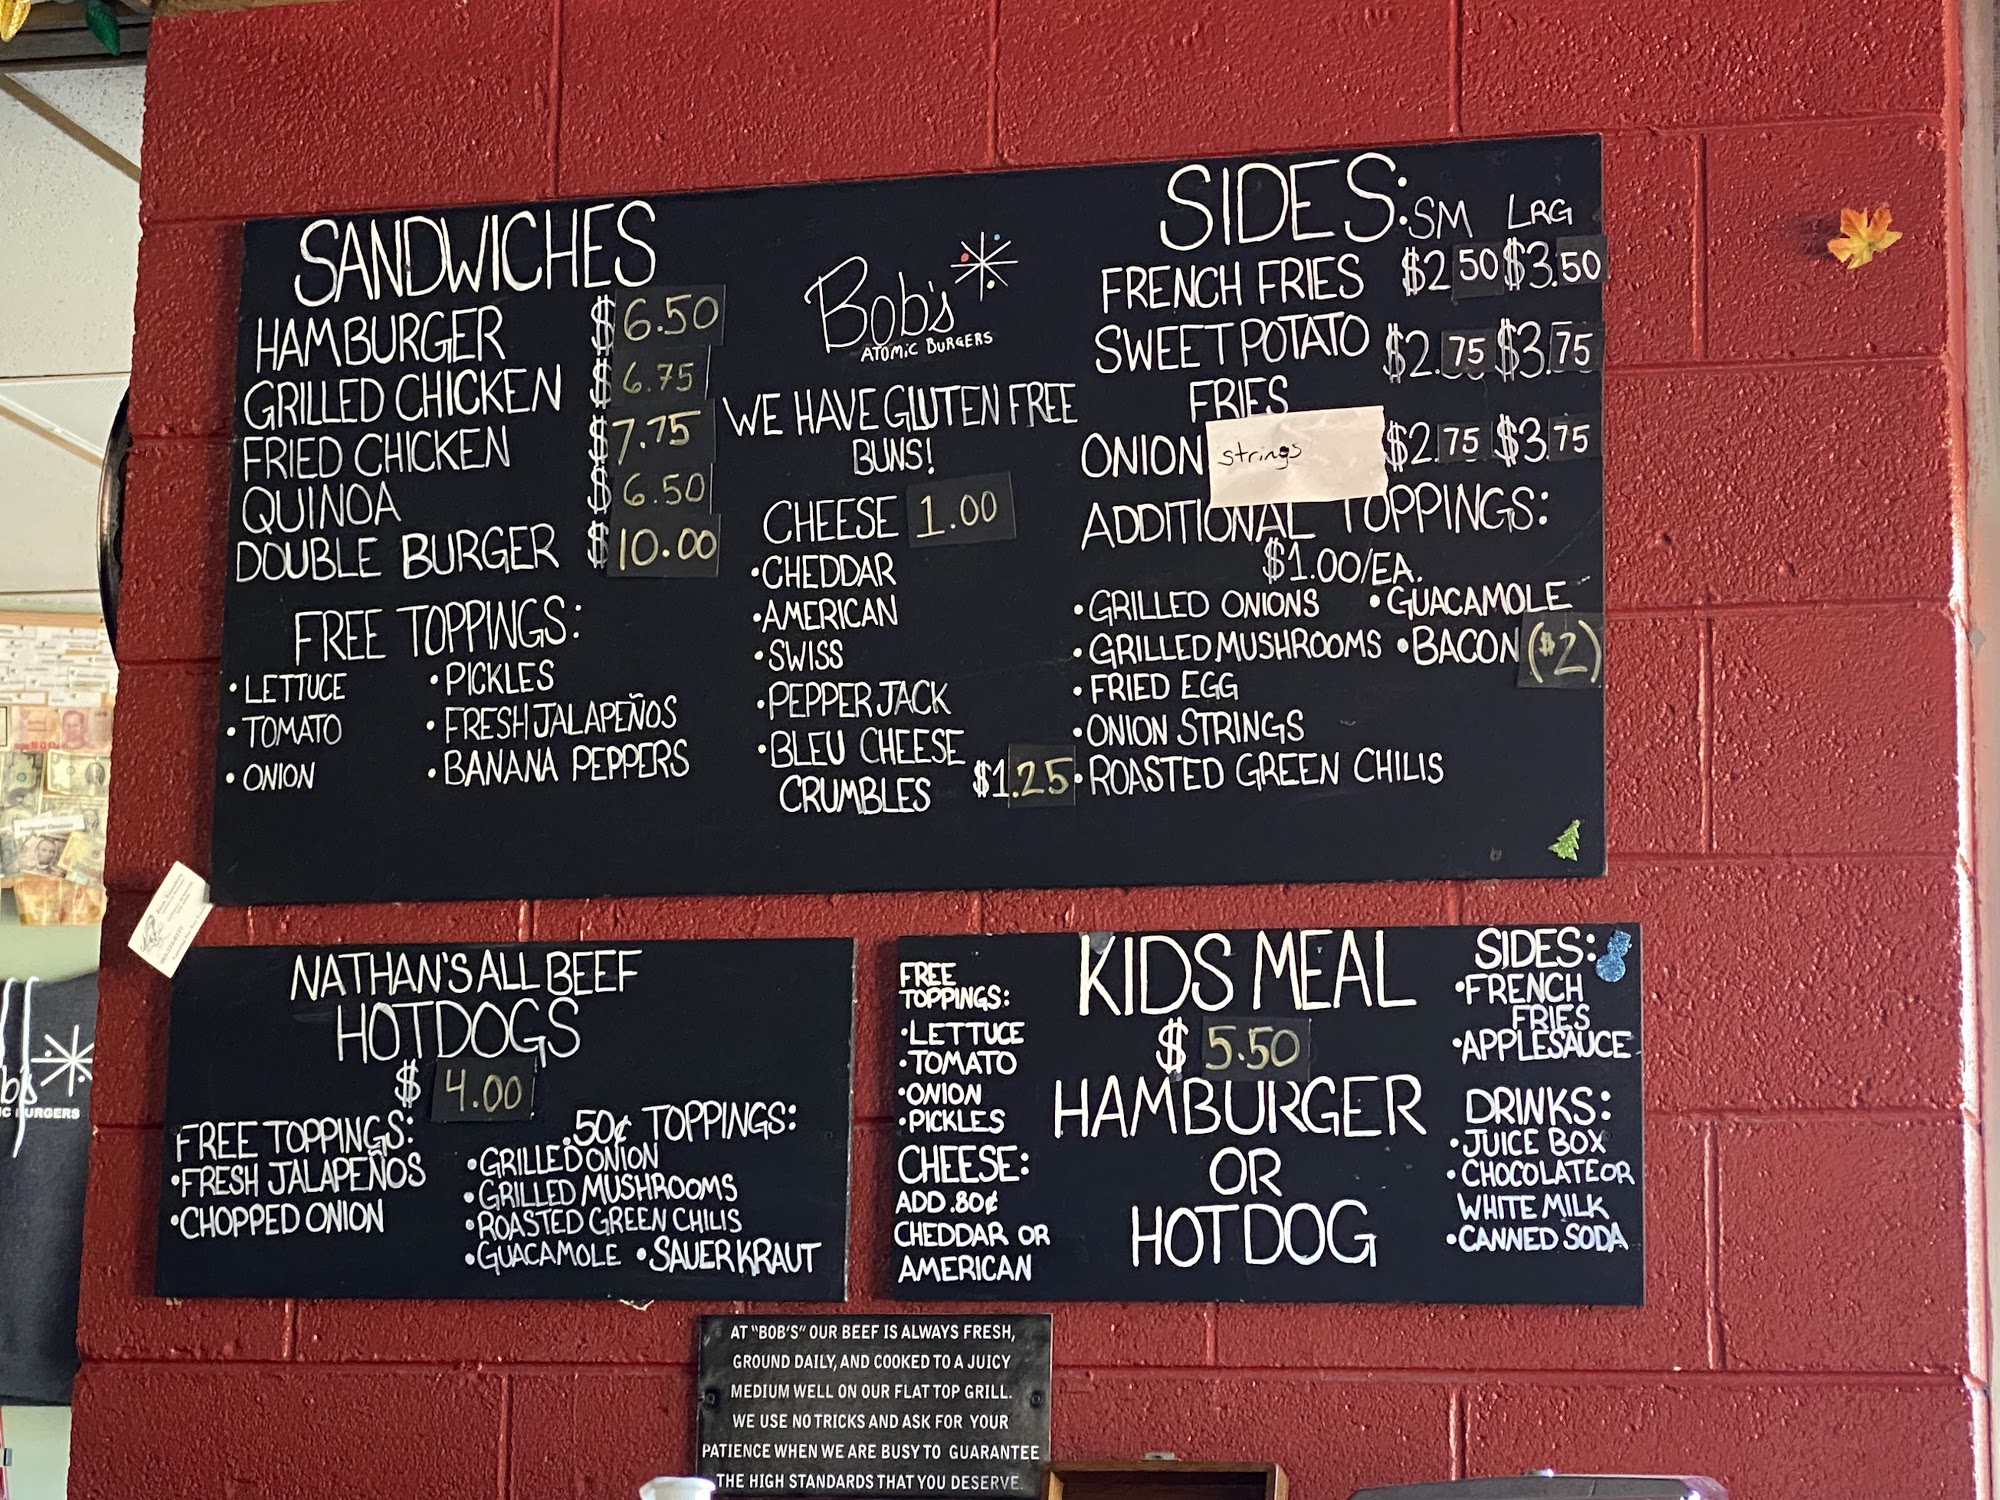 SANDWICHES
HAMBURGER $6.50
GRILLED CHICKEN $6.75
FRIED CHICKEN $7.75
QUINOA $6.50
DOUBLE BURGER $10.00
FREE TOPPINGS:
• LETTUCE
• TOMATO
• ONION
• PICKLES
• FRESH JALAPEÑOS
• BANANA PEPPERS
Bob's
ATOMIC BURGERS
WE HAVE GLUTEN FREE
BUNS!
CHEESE 1.00
• CHEDDAR
• AMERICAN
• SWISS
• PEPPER JACK
• BLEU CHEESE
CRUMBLES $1.25
SIDES: SM LRG
FRENCH FRIES $2 50 $3.50
SWEET POTATO $2.75 $3.75
FRIES
ONION strings $2.75 $3.75
ADDITIONAL TOPPINGS:
$1.00/EA.
• GRILLED ONIONS • GUACAMOLE
• GRILLED MUSHROOMS • BACON ($2)
• FRIED EGG
• ONION STRINGS
• ROASTED GREEN CHILIS
NATHAN'S ALL BEEF
HOTDOGS
$ 4.00
FREE TOPPINGS:
• FRESH JALAPEÑOS
• CHOPPED ONION
.50¢ TOPPINGS:
• GRILLED ONION
• GRILLED MUSHROOMS
• ROASTED GREEN CHILIS
• GUACAMOLE • SAUERKRAUT
FREE
TOPPINGS:
• LETTUCE
• TOMATO
• ONION
• PICKLES
CHEESE:
ADD .80¢
CHEDDAR OR
AMERICAN
KIDS MEAL
$ 5.50
HAMBURGER
OR
HOTDOG
SIDES:
• FRENCH
FRIES
• APPLESAUCE
DRINKS:
• JUICE BOX
• CHOCOLATE OR
WHITE MILK
• CANNED SODA
AT "BOB'S" OUR BEEF IS ALWAYS FRESH,
GROUND DAILY, AND COOKED TO A JUICY
MEDIUM WELL ON OUR FLAT TOP GRILL.
WE USE NO TRICKS AND ASK FOR YOUR
PATIENCE WHEN WE ARE BUSY TO GUARANTEE
THE HIGH STANDARDS THAT YOU DESERVE.